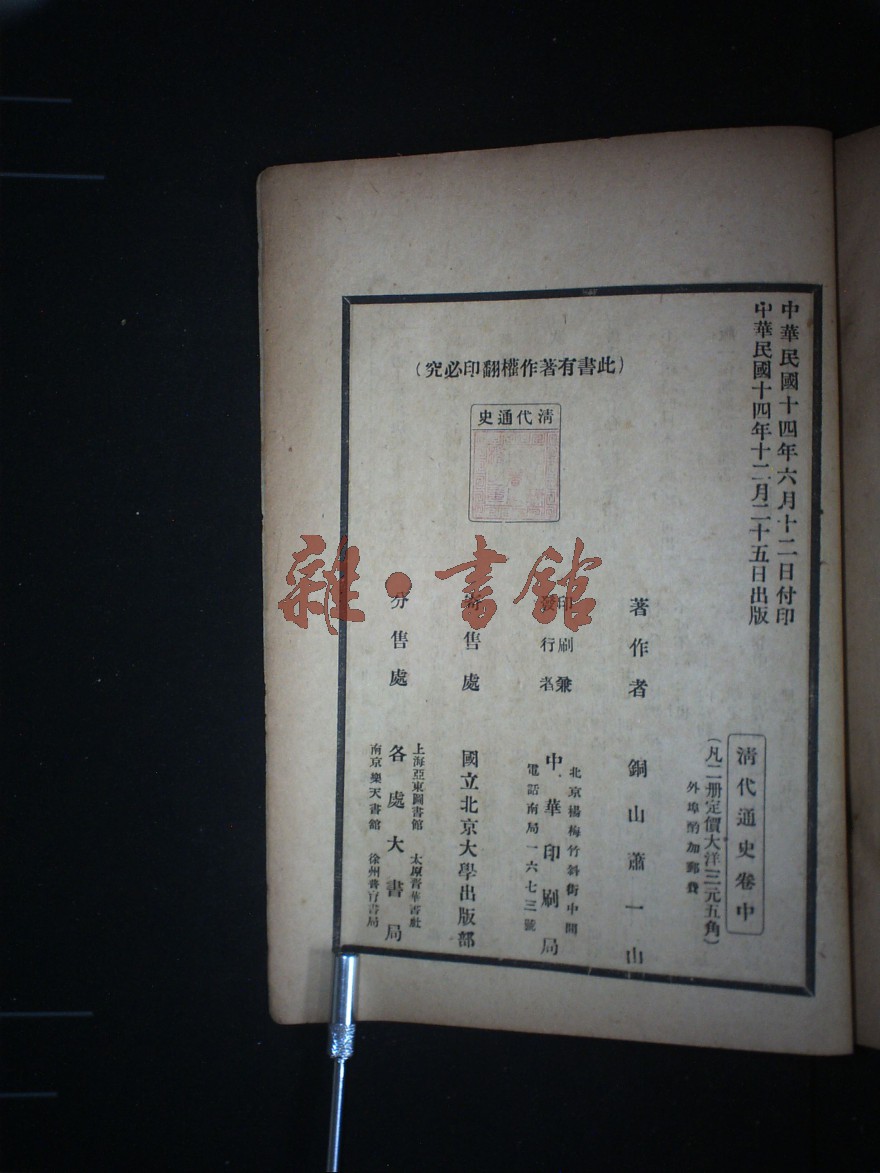 中華民國十四年六月十二日付印
中華民國十四年十二月二十五日出版
清代通史卷中
（凡二册定價大洋三元五角）
外埠酌加郵費
（此書有著作權翻印必究）
清代通史
著作者 銅山蕭一山
印刷兼
發行者
北京楊梅竹斜街中間
中華印刷局
電話南局一六七三號
寄售處 國立北京大學出版部
分售處
上海亞東圖書館 太原晉華書社
各處大書局
南京樂天書館 徐州普育書局
雜·書館